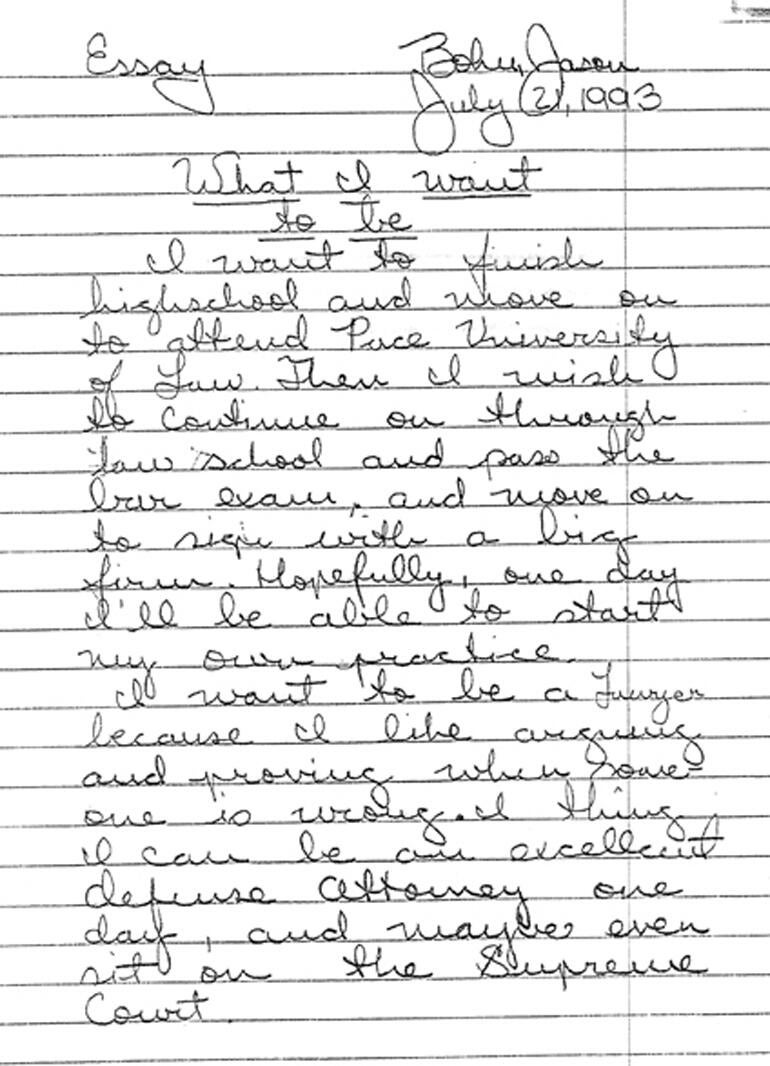 Essay Bohn, Jason
July 21, 1993
What I want
to be
I want to finish
highschool and move on
to attend Pace University
of Law. Then I wish
to continue on through
law school and pass the
bar exam, and move on
to sign with a big
firm. Hopefully, one day
I'll be able to start
my own practice.
I want to be a Lawyer
because I like arguing
and proving when some-
one is wrong. I thing
I can be an excellent
defense attorney one
day, and maybe even
sit on the Supreme
Court.